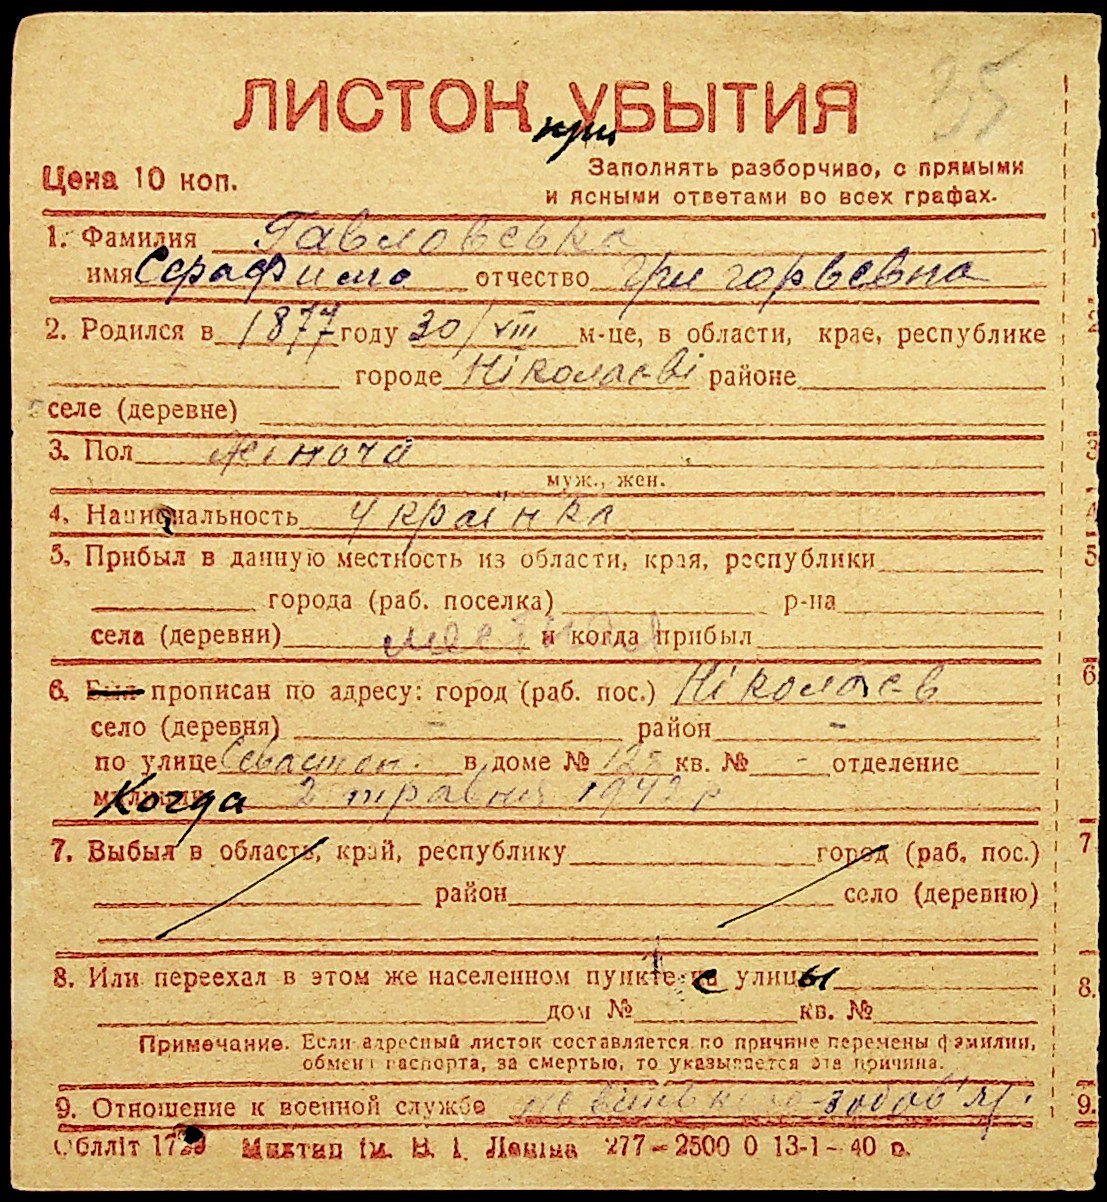 35
ЛИСТОК УБЫТИЯ
при
Цена 10 коп.
Заполнять разборчиво, с прямыми
и ясными ответами во всех графах.
1. Фамилия Павловська
имя Серафима отчество Григорьевна
2. Родился в 1877 году 30/VIII м-це, в области, крае, республике
городе Ніколаєві районе
селе (деревне)
3. Пол жіноча
муж., жен.
4. Национальность українка
5. Прибыл в данную местность из области, края, республики
города (раб. поселка) р-на
села (деревни) местная и когда прибыл
6. Был прописан по адресу: город (раб. пос.) Ніколаєв
село (деревня) - район -
по улице Севастоп. в доме № 125 кв. № - отделение
милиции Когда 2 травня 1942 р
7. Выбыл в область, край, республику город (раб. пос.)
район село (деревню)
8. Или переехал в этом же населенном пункте с улицы
дом № кв. №
Примечание. Если адресный листок составляется по причине перемены фамилии,
обмена паспорта, за смертью, то указывается эта причина.
9. Отношение к военной службе не військово-зобов'яз.
Облліт 1729 Миктип ім. В. І. Леніна 277-2500 0 13-1-40 р.
6.
7
8.
9.